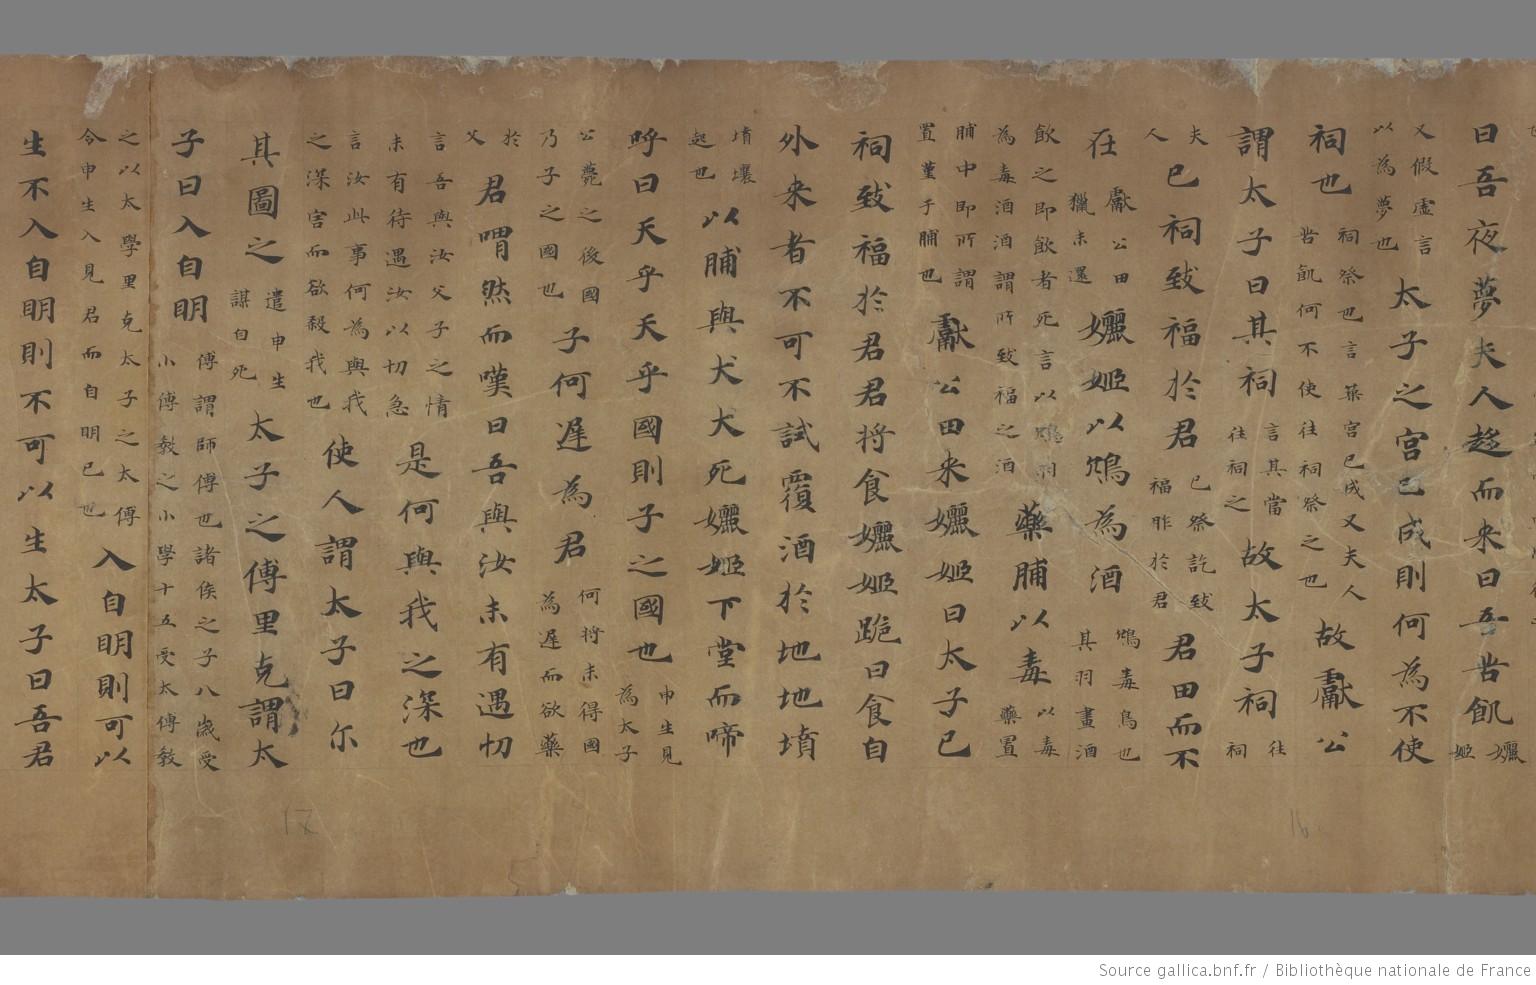 曰吾夜夢夫人趍而来曰吾苦飢孋姬
又假虛言以為夢也太子之宮已成則何為不使
祠也祠祭也言築宮已成又夫人苦飢何不使往祠祭之也故獻公
謂太子曰其祠言其當往祠之故太子祠往祠
夫人已祠致福於君已祭訖致福胙於君君田而不
在獻公田獵未還孋姬以鴆為酒鴆毒鳥也其羽畫酒
飲之即飲者死言以鴆羽為毒酒酒謂所致福之酒藥脯以毒以毒藥置
脯中即所謂置菫于脯也獻公田来孋姬曰太子已
祠致福於君君将食孋姬跪曰食自
外来者不可不試覆酒於地地墳
墳壤起也以脯與犬犬死孋姬下堂而啼
呼曰天乎天乎國則子之國也申生見為太子
公薨之後國乃子之國也子何遲為君何将未得國為遲而欲藥
於父君喟然而嘆曰吾與汝未有過切
言吾與汝父子之情未有待過汝以切急是何與我之深也
言汝此事何為與我之深害而欲殺我也使人謂太子曰尔
其圖之遣申生謀自死太子之傅里克謂太
子曰入自明傅謂師傅也諸侯之子八歲受小傅教之小學十五受太傅教
之以太學里克太子之太傅令申生入見君而自明已也入自明則可以
生不入自明則不可以生太子曰吾君